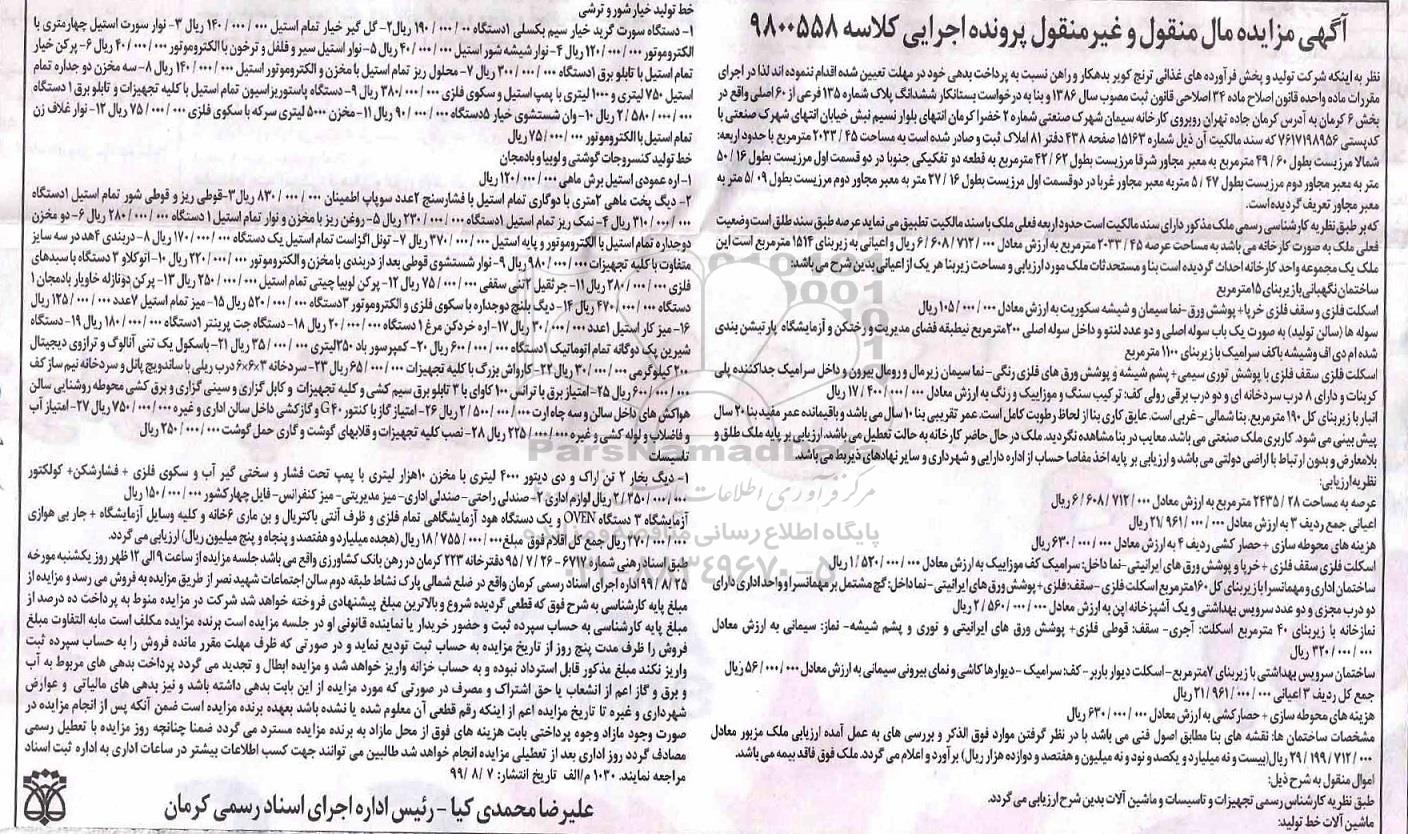 آگهی مزایده مال منقول و غیر منقول پرونده اجرایی کلاسه ۹۸۰۰۵۵۸
نظر به اینکه شرکت تولید و پخش فرآورده های غذائی ترنج کویر بدهکار و راهن نسبت به پرداخت بدهی خود در مهلت تعیین شده اقدام ننموده اند لذا در اجرای
مقررات ماده واحده قانون اصلاح ماده ۳۴ اصلاحی قانون ثبت مصوب سال ۱۳۸۶ و بنا به درخواست بستانکار ششدانگ پلاک شماره ۱۳۵ فرعی از ۶۰ اصلی واقع در
بخش ۶ کرمان به آدرس کرمان جاده تهران روبروی کارخانه سیمان شهرک صنعتی شماره ۲ خضرا کرمان انتهای بلوار نسیم نبش خیابان انتهای شهرک صنعتی با
کدپستی ۷۶۱۷۱۹۸۹۵۶ که سند مالکیت آن ذیل شماره ۱۵۱۶۳ صفحه ۴۳۸ دفتر ۸۱ املاک ثبت و صادر شده است به مساحت ۴۵ / ۲۰۳۳ مترمربع با حدود اربعه:
شمالا مرزیست بطول ۶۰ / ۴۹ مترمربع به معبر مجاور شرقا مرزیست بطول ۶۲ / ۴۲ مترمربع به قطعه دو تفکیکی جنوبا در دو قسمت اول مرزیست بطول ۱۶ / ۵۰
متر به معبر مجاور دوم مرزیست بطول ۴۷ / ۵ متربه معبر مجاور غربا در دوقسمت اول مرزیست بطول ۱۶ / ۲۷ متر به معبر مجاور دوم مرزیست بطول ۰۹ / ۵ متر به
معبر مجاور تعریف گردیده است.
که بر طبق نظریه کارشناسی رسمی ملک مذکور دارای سند مالکیت است حدود اربعه فعلی ملک با سند مالکیت تطبیق می نماید عرصه طبق سند طلق است وضعیت
فعلی ملک به صورت کارخانه می باشد به مساحت عرصه ۴۵ / ۲۰۳۳ مترمربع به ارزش معادل ۰۰۰ / ۷۱۲ / ۶۰۸ / ۶ ریال و اعیانی به زیربنای ۱۵۱۴ مترمربع است این
ملک یک مجموعه واحد کارخانه احداث گردیده است بنا و مستحدثات ملک مورد ارزیابی و مساحت زیربنا هر یک از اعیانی بدین شرح می باشد:
ساختمان نگهبانی با زیربنای ۱۵ مترمربع
اسکلت فلزی و سقف فلزی خرپا+ پوشش ورق-نما سیمان و شیشه سکوریت به ارزش معادل ۰۰۰ / ۰۰۰ / ۱۰۵ ریال
سوله ها (سالن تولید) به صورت یک باب سوله اصلی و دو عدد لنتو و داخل سوله اصلی ۲۰۰ مترمربع نیطبقه فضای مدیریت و رختکن و آزمایشگاه پارتیشن بندی
شده ام دی اف وشیشه باکف سرامیک با زیربنای ۱۱۰۰ مترمربع
اسکلت فلزی سقف فلزی با پوشش توری سیمی+ پشم شیشه و پوشش ورق های فلزی رنگی-نما سیمان زیرمال و رومال بیرون و داخل سرامیک جداکننده پلی
کربنات و دارای ۸ درب سردخانه ای و دو درب برقی رولی کف: ترکیب سنگ و موزاییک و رنگ به ارزش معادل ۰۰۰ / ۰۰۰ / ۴۰۰ / ۱۷ ریال
انبار با زیربنای کل ۱۹۰ مترمربع. بنا شمالی -غربی است. عایق کاری بنا از لحاظ رطوبت کامل است. عمر تقریبی بنا ۱۰ سال می باشد و باقیمانده عمر مفید بنا ۲۰ سال
پیش بینی می شود. کاربری ملک صنعتی می باشد. معایب در بنا مشاهده نگردید. ملک در حال حاضر کارخانه به حالت تعطیل می باشد. ارزیابی بر پایه ملک طلق و
بلامعارض و بدون ارتباط با اراضی دولتی می باشد و ارزیابی بر پایه اخذ مفاصا حساب از اداره دارایی و شهرداری و سایر نهادهای ذیربط می باشد.
نظریه ارزیابی:
عرصه به مساحت ۲۸ / ۲۴۳۵ مترمربع به ارزش معادل ۰۰۰ / ۷۱۲ / ۶۰۸ / ۶ ریال
اعیانی جمع ردیف ۳ به ارزش معادل ۰۰۰ / ۰۰۰ / ۹۶۱ / ۲۱ ریال
هزینه های محوطه سازی + حصار کشی ردیف ۴ به ارزش معادل ۰۰۰ / ۰۰۰ / ۶۳۰ ریال
اسکلت فلزی سقف فلزی + خرپا و پوشش ورق های ایرانیتی-نما داخل: سرامیک کف موزاییک به ارزش معادل ۰۰۰ / ۰۰۰ / ۵۲۰ / ۱ ریال
ساختمان اداری و مهمانسرا با زیربنای کل ۱۶۰ مترمربع اسکلت فلزی - سقف:فلزی + پوشش ورق های ایرانیتی-نما داخل: گچ مشتمل بر مهمانسرا و واحد اداری دارای
دو درب مجزی و دو عدد سرویس بهداشتی و یک آشپزخانه اپن به ارزش معادل ۰۰۰ / ۰۰۰ / ۵۶۰ / ۲ ریال
نمازخانه با زیربنای ۴۰ مترمربع اسکلت: آجری- سقف: قوطی فلزی+ پوشش ورق های ایرانیتی و توری و پشم شیشه- نماز: سیمانی به ارزش معادل
۰۰۰ / ۰۰۰ / ۳۲۰ ریال
ساختمان سرویس بهداشتی با زیربنای ۷مترمربع-اسکلت دیوار باربر - کف:سرامیک - دیوارها کاشی و نمای بیرونی سیمانی به ارزش معادل ۰۰۰ / ۰۰۰ / ۵۶ ریال
جمع کل ردیف ۳ اعیانی ۰۰۰ / ۰۰۰ / ۹۶۱ / ۲۱ ریال
هزینه های محوطه سازی + حصارکشی به ارزش معادل ۰۰۰ / ۰۰۰ / ۶۳۰ ریال
مشخصات ساختمان ها: نقشه های بنا مطابق اصول فنی می باشد با در نظر گرفتن موارد فوق الذکر و بررسی های به عمل آمده ارزیابی ملک مزبور معادل
۰۰۰ / ۷۱۲ / ۱۹۹ / ۲۹ ریال(بیست و نه میلیارد و یکصد و نود و نه میلیون و هفتصد و دوازده هزار ریال) برآورد و اعلام می گردد. ملک فوق فاقد بیمه می باشد.
اموال منقول به شرح ذیل:
طبق نظریه کارشناس رسمی تجهیزات و تاسیسات و ماشین آلات بدین شرح ارزیابی می گردد.
ماشین آلات خط تولید:
خط تولید خیار شور و ترشی
۱- دستگاه سورت گرید خیار سیم بکسلی ۱دستگاه ۰۰۰ / ۰۰۰ / ۱۹۰ ریال۲- گل گیر خیار تمام استیل ۰۰۰ / ۰۰۰ / ۱۴۰ ریال ۳- نوار سورت استیل چهارمتری با
الکتروموتور ۰۰۰ / ۰۰۰ / ۱۲۰ ریال ۴-نوار شیشه شور استیل ۰۰۰ / ۰۰۰ / ۴۰ ریال ۵-نوار استیل سیر و فلفل و ترخون با الکتروموتور ۰۰۰ / ۰۰۰ / ۴۰ ریال ۶-پرکن خیار
تمام استیل با تابلو برق ۱دستگاه ۰۰۰ / ۰۰۰ / ۳۰۰ ریال ۷- محلول ریز تمام استیل با مخزن و الکتروموتور استیل ۰۰۰ / ۰۰۰ / ۱۴۰ ریال ۸-سه مخزن دو جداره تمام
استیل ۷۵۰ لیتری و ۱۰۰۰ لیتری با پمپ استیل و سکوی فلزی ۰۰۰ / ۰۰۰ / ۳۸۰ ریال ۹- دستگاه پاستوریزاسیون تمام استیل با کلیه تجهیزات و تابلو برق ۱ دستگاه
۰۰۰ / ۰۰۰ / ۵۸۰ / ۲ ریال ۱۰-وان شستشوی خیار ۵دستگاه ۰۰۰ / ۰۰۰ / ۹۰ ریال ۱۱-مخزن ۵۰۰۰ لیتری سرکه با سکوی فلزی ۰۰۰ / ۰۰۰ / ۷۵ ریال ۱۲-نوار غلاف زن
تمام استیل با الکتروموتور ۰۰۰ / ۰۰۰ / ۷۵ ریال
خط تولید کنسروجات گوشتی و لوبیا و بادمجان
۱-اره عمودی استیل برش ماهی ۰۰۰ / ۰۰۰ / ۱۲۰ ریال
۲- دیگ پخت ماهی ۲متری با دوگاری تمام استیل با فشارسنج ۲عدد سوپاپ اطمینان ۰۰۰ / ۰۰۰ / ۸۳۰ ریال۳-قوطی ریز و قوطی شور تمام استیل ۱دستگاه
۰۰۰ / ۰۰۰ / ۳۱۰ ریال ۴- نمک ریز تمام استیل ۱دستگاه ۰۰۰ / ۰۰۰ / ۲۳۰ ریال ۵- روغن ریز با مخزن و نوار تمام استیل ۱ دستگاه ۰۰۰ / ۰۰۰ / ۲۸۰ ریال ۶-دو مخزن
دوجداره تمام استیل با الکتروموتور و پایه استیل ۰۰۰ / ۰۰۰ / ۳۷۰ ریال ۷- تونل اگزاست تمام استیل یک دستگاه ۰۰۰ / ۰۰۰ / ۱۷۰ ریال ۸- دربندی ۴هد در سه سایز
متفاوت با کلیه تجهیزات ۰۰۰ / ۰۰۰ / ۹۸۰ ریال ۹-نوار شستشوی قوطی بعد از دربندی با مخزن و الکتروموتور ۰۰۰ / ۰۰۰ / ۲۲۰ ریال ۱۰-اتوکلاو ۲ دستگاه با سبدهای
فلزی ۰۰۰ / ۰۰۰ / ۲۸۰ ریال ۱۱- جرثقیل ۲تنی سقفی ۰۰۰ / ۰۰۰ / ۷۵ ریال ۱۲- پرکن لوبیا چیتی تمام استیل ۰۰۰ / ۰۰۰ / ۲۵۰ ریال ۱۳- پرکن دونازله خاویار بادمجان ۱
دستگاه ۰۰۰ / ۰۰۰ / ۴۷۰ ریال ۱۴- دیگ بلنچ دوجداره با سکوی فلزی و الکتروموتور ۳دستگاه ۰۰۰ / ۰۰۰ / ۵۲۰ ریال ۱۵- میز تمام استیل ۷عدد ۰۰۰ / ۰۰۰ / ۱۲۵ ریال
۱۶-میز کار استیل ۱عدد ۰۰۰ / ۰۰۰ / ۳۰ ریال ۱۷-اره خردکن مرغ ۱ دستگاه ۰۰۰ / ۰۰۰ / ۲۰ ریال ۱۸- دستگاه جت پرینتر ۱دستگاه ۰۰۰ / ۰۰۰ / ۱۸۰ ریال ۱۹- دستگاه
شیرین پک دوگانه تمام اتوماتیک ۱دستگاه ۰۰۰ / ۰۰۰ / ۶۰۰ ریال ۲۰- کمپرسور باد ۲۵۰لیتری ۰۰۰ / ۰۰۰ / ۳۵ ریال ۲۱-باسکول یک تنی آنالوگ و ترازوی دیجیتال
۲۰۰ کیلوگرمی ۰۰۰ / ۰۰۰ / ۳۰ ریال ۲۲-کارواش بزرگ با کلیه تجهیزات ۰۰۰ / ۰۰۰ / ۶۵ ریال ۲۳- سردخانه ۳×۶×۶ درب ریلی با ساندویچ پانل و سردخانه نیم ساز کف
۰۰۰ / ۰۰۰ / ۶۰۰ ریال ۲۵-امتیاز برق با ترانس ۱۰۰ کاوای با ۳ تابلو برق سیم کشی و کلیه تجهیزات و کابل گزاری و سینی گزاری و برق کشی محوطه روشنایی سالن
هواکش های داخل سالن و سه چاه ارت ۰۰۰ / ۰۰۰ / ۵۰۰ / ۲ ریال ۲۶-امتیاز گاز با کنتور ۴۰ G و گازکشی داخل سالن اداری و غیره ۰۰۰ / ۰۰۰ / ۷۵۰ ریال ۲۷-امتیاز آب
و فاضلاب و لوله کشی و غیره ۰۰۰ / ۰۰۰ / ۲۲۵ ریال ۲۸-نصب کلیه تجهیزات و قلابهای گوشت و گاری حمل گوشت ۰۰۰ / ۰۰۰ / ۲۵۰ ریال
تاسیسات
۱- دیگ بخار ۲ تن اراک و دی دیتور ۴۰۰۰ لیتری با مخزن ۱۰هزار لیتری با پمپ تحت فشار و سختی گیر آب و سکوی فلزی + فشارشکن+ کولکتور
۰۰۰ / ۰۰۰ / ۳۵۰ / ۲ ریال لوازم اداری ۲- صندلی راحتی- صندلی اداری-میز مدیریتی- میز کنفرانس- فایل چهارکشور ۰۰۰ / ۰۰۰ / ۱۵۰ ریال
آزمایشگاه ۳ دستگاه OVEN و یک دستگاه هود آزمایشگاهی تمام فلزی و ظرف آنتی باکتریال و بن ماری ۶خانه و کلیه وسایل آزمایشگاه + جار بی هوازی
۰۰۰ / ۰۰۰ / ۲۷۰ ریال جمع کل اقلام فوق مبلغ۰۰۰ / ۰۰۰ / ۷۵۵ / ۱۸ ریال (هجده میلیارد و هفتصد و پنجاه و پنج میلیون ریال) ارزیابی می گردد.
طبق اسناد رهنی شماره ۶۷۱۷-۲۶ / ۷ / ۹۵ دفترخانه ۲۲۳ کرمان در رهن بانک کشاورزی واقع می باشد جلسه مزایده از ساعت ۹ الی ۱۲ ظهر روز یکشنبه مورخه
۲۵ / ۸ / ۹۹ اداره اجرای اسناد رسمی کرمان واقع در ضلع شمالی پارک نشاط طبقه دوم سالن اجتماعات شهید نصر از طریق مزایده به فروش می رسد و مزایده از
مبلغ پایه کارشناسی به شرح فوق که قطعی گردیده شروع و بالاترین مبلغ پیشنهادی فروخته خواهد شد شرکت در مزایده منوط به پرداخت ده درصد از
مبلغ پایه کارشناسی به حساب سپرده ثبت و حضور خریدار یا نماینده قانونی او در جلسه مزایده است برنده مزایده مکلف است مابه التفاوت مبلغ
فروش را ظرف مدت پنج روز از تاریخ مزایده به حساب ثبت تودیع نماید و در صورتی که ظرف مهلت مقرر مانده فروش را به حساب سپرده ثبت
واریز نکند مبلغ مذکور قابل استرداد نبوده و به حساب خزانه واریز خواهد شد و مزایده ابطال و تجدید می گردد پرداخت بدهی های مربوط به آب
و برق و گاز اعم از انشعاب یا حق اشتراک و مصرف در صورتی که مورد مزایده از این بابت بدهی داشته باشد و نیز بدهی های مالیاتی و عوارض
شهرداری و غیره تا تاریخ مزایده اعم از اینکه رقم قطعی آن معلوم شده یا نشده باشد بعهده برنده مزایده است ضمن آنکه پس از انجام مزایده در
صورت وجود مازاد وجوه پرداختی بابت هزینه های فوق از محل مازاد به برنده مزایده مسترد می گردد ضمنا چنانچه روز مزایده با تعطیل رسمی
مصادف گردد روز اداری بعد از تعطیلی مزایده انجام خواهد شد طالبین می توانند جهت کسب اطلاعات بیشتر در ساعات اداری به اداره ثبت اسناد
مراجعه نمایند. ۱۰۳۰ م/الف تاریخ انتشار: ۷ / ۸ / ۹۹
علیرضا محمدی کیا - رئیس اداره اجرای اسناد رسمی کرمان
ParsNamadData
مرکز فرآوری اطلاعات